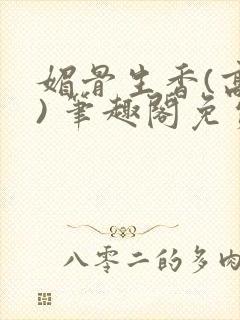 媚骨生香(高
)笔趣阁免
八零二的多肉